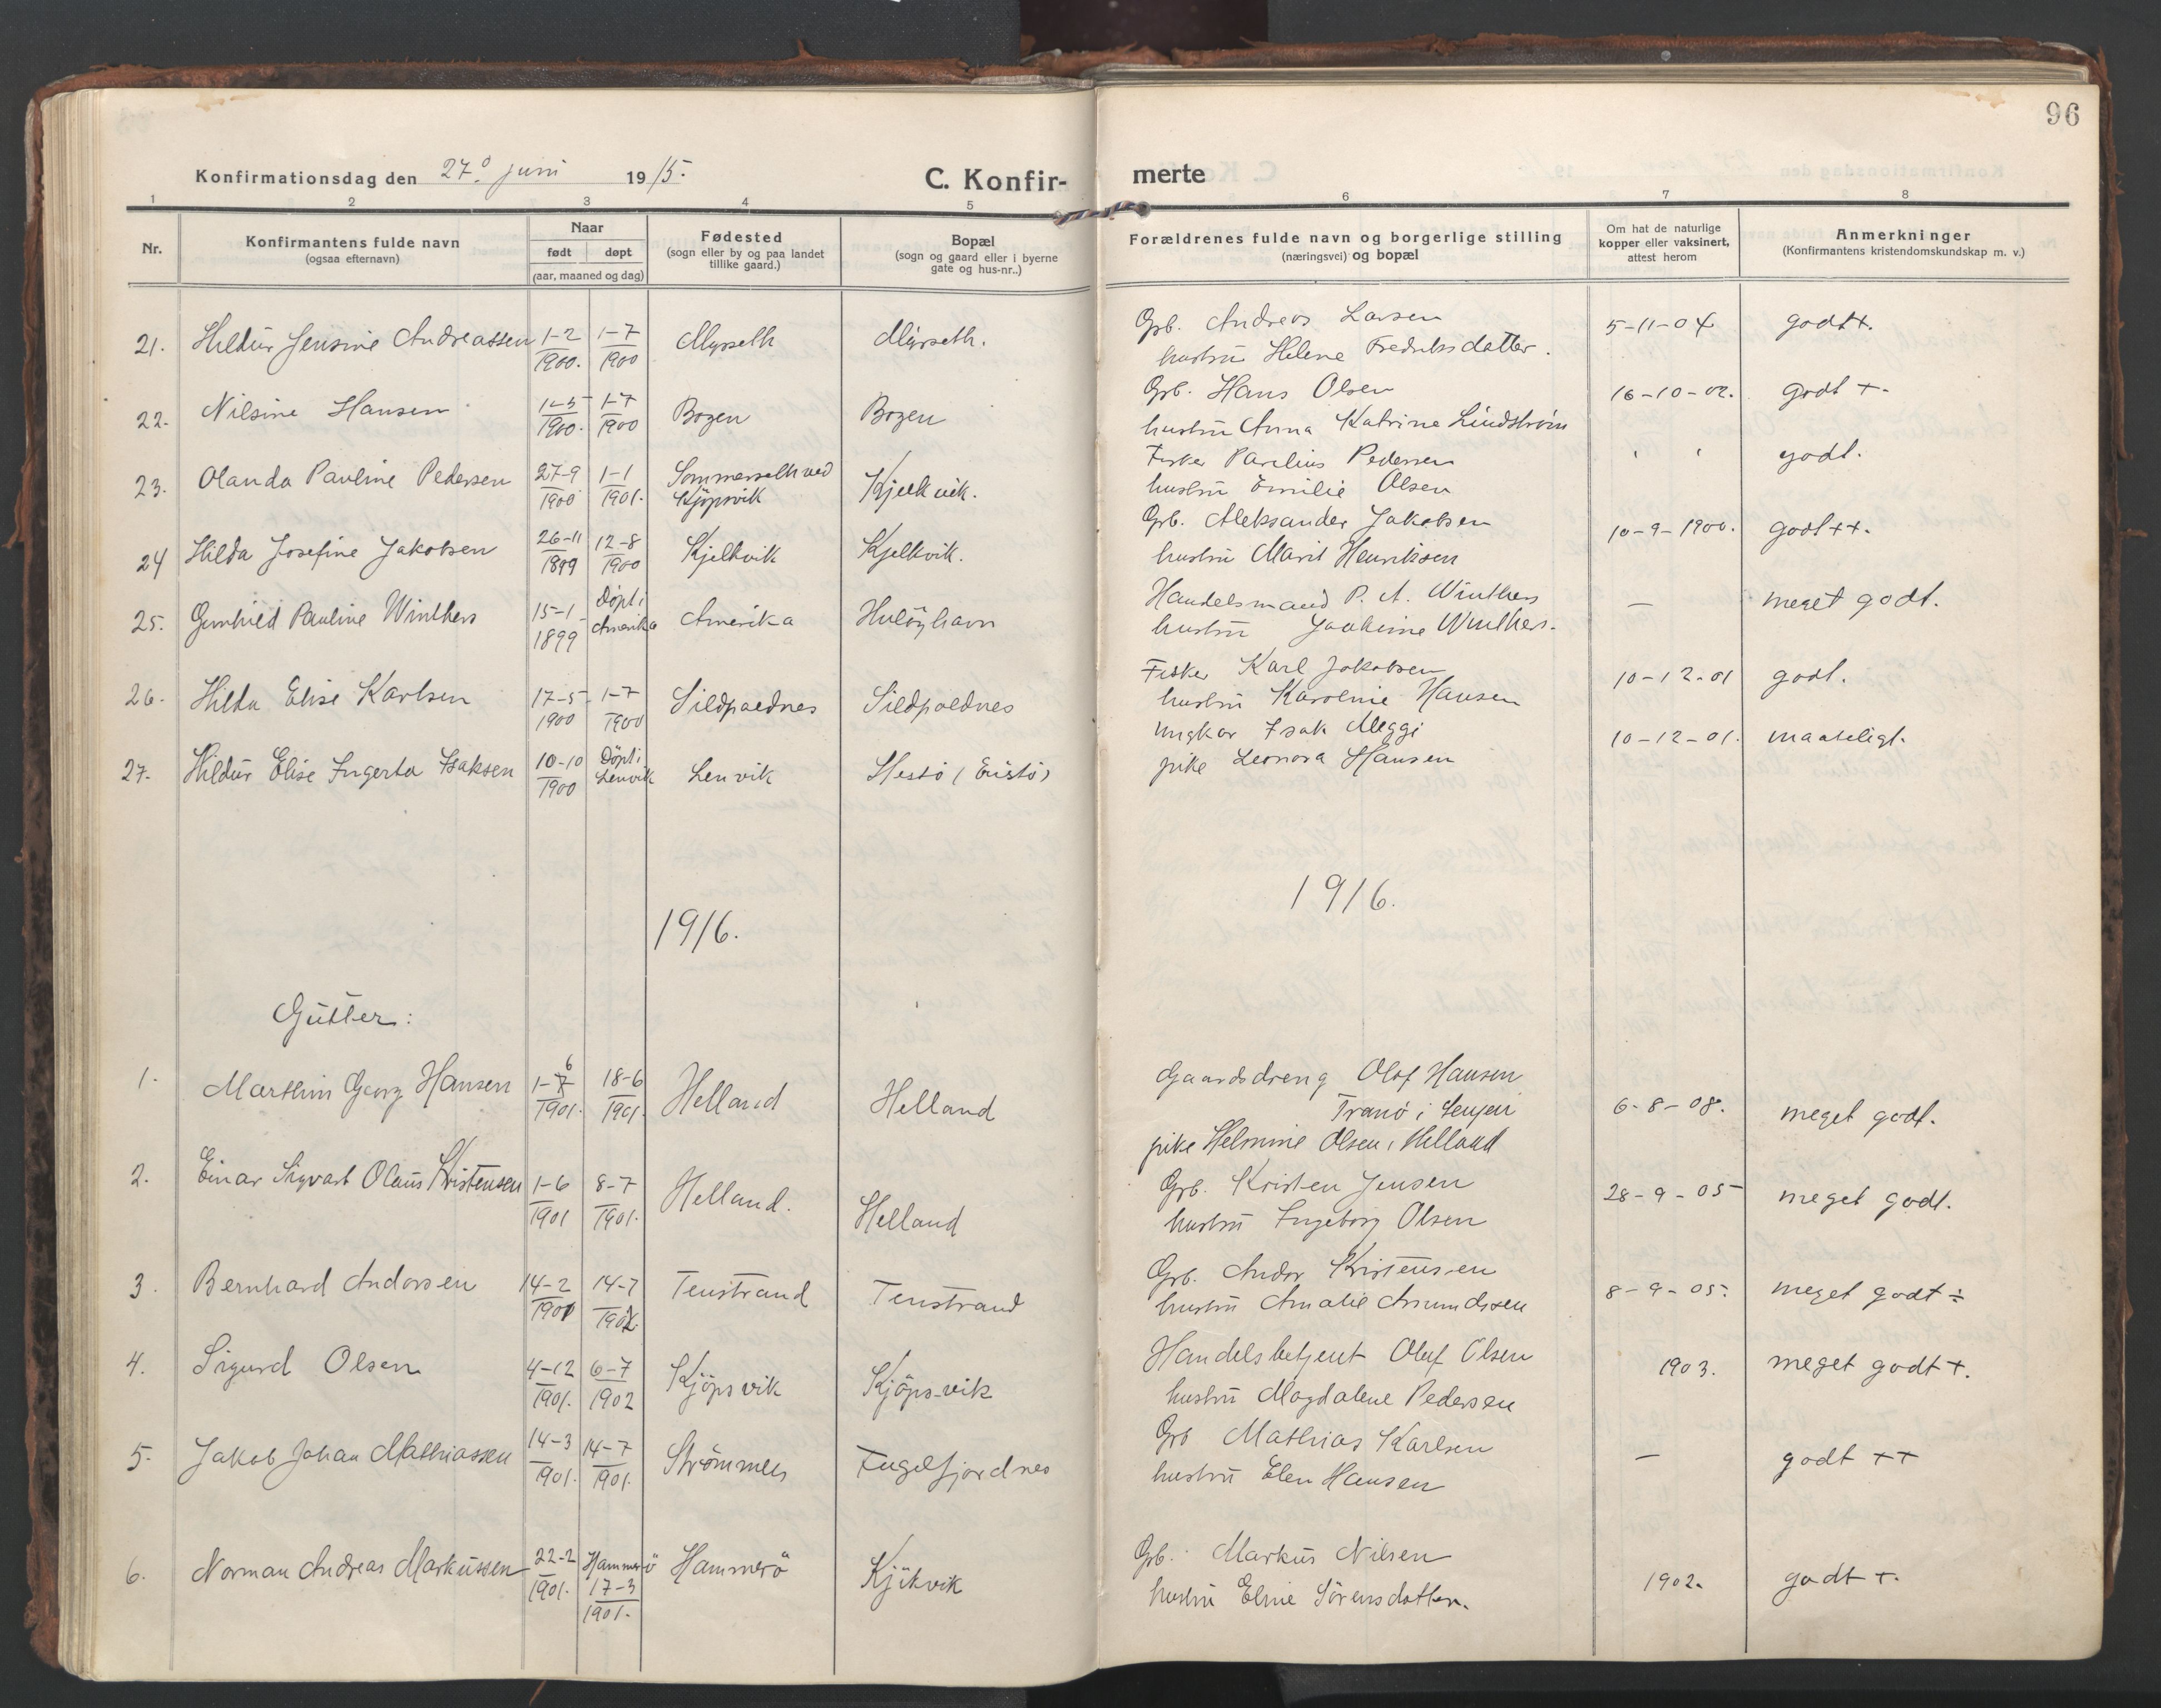 96
Konfirmationsdag den 27. juni 1915.
C. Konfir-
merte
1 2 3 4 5 6 7 8
Nr.
Konfirmantens fulde navn
(ogsaa efternavn)
Naar
født døpt
(aar, maaned og dag)
Fødested
(sogn eller by og paa landet
tillike gaard.)
Bopæl
(sogn og gaard eller i byerne
gate og hus-nr..)
Forældrenes fulde navn og borgerlige stilling
(næringsvei) og bopæl
Om hat de naturlige
kopper eller vaksinert,
attest herom
Anmerkninger
(Konfirmantens kristendomskundskap m. v.)
21. Hildur Jensine Andreassen 1-2 1900. 1-7 1900 Myrseth Myrseth. Grb. Andreas Larsen 5-11-04 godt+.
hustru Helene Fredriksdatter.
22. Nilsine Hansen 1-5 1900. 1-7 1900 Bogen Bogen Grb. Hans Olsen 16-10-02. godt +.
hustru Anna Katrine Lindstrøm
23. Olanda Pauline Pedersen 27-9 1900 1-1 1901. Sommerseth ved Kjøpsvik Kjelkvik. Fisker Parelius Pedersen ' ' godt.
hustru Emilie Olsen
24 Hilda Josefine Jakobsen 26-11 1899 12-8 1900 Kjelkvik Kjelkvik. Grb. Aleksander Jakobsen 10-9-1900. godt++.
hustru Marit Henriksen
25. Gunhild Pauline Winthers 15-1 1899 Döpt i Amerika Amerika Huløyhavn Handelsmand P. A. Winthers — meget godt.
hustru Joakime Winthers.
26. Hilda Elise Karlsen 17-5 1900 1-7 1900 Sildpoldnes Sildpoldnes Fisker Karl Jakobsen 10-12-01 godt.
hustru Karoline Hansen
27. Hildur Elise Ingerta Isaksen 10-10 1900 Döpt i Lenvik Lenvik Hestö (Evistö) Ungkar Isak Meggi 10-12-01. maateligt.
pike Leonora Hansen
1916.
1916.
Gutter:
1. Marthin Georg Hansen 1-7 6 1901. 18-6 1901. Helland Helland Gaardsdreng Olof Hansen 6-8-08. meget godt.
Tranö i Senjen
pike Helmine Olsen, Helland
2. Einar Sigvart Olaus Kristensen 1-6 1901 8-7 1901. Helland. Helland Grb. Kristen Jensen 28-9-05 meget godt.
hustru Ingeborg Olsen
3. Bernhard Andorsen 14-2 1901 14-7 1901. Tenstrand Tenstrand Grb. Andor Kristensen 8-9-05. meget godt ÷
hustru Amalie Amundsen
4. Sigurd Olsen 4-12 1901. 6-7 1902 Kjöpsvik Kjöpsvik Handelsbetjent Oluf Olsen 1903. meget godt +.
hustru Magdalene Pedersen
5. Jakob Johan Mathiassen 14-3 1901. 14-7 1901. Strømmen Fugelfjordnes Grb Mathias Karlsen — godt ++
hustru Elen Hansen
6. Norman Andreas Markussen 22-2 1901. Hammerö 17-3 1901. Hammerö Kjikvik Grb. Markus Nilsen 1902. godt +.
hustru Eline Sörensdatter.